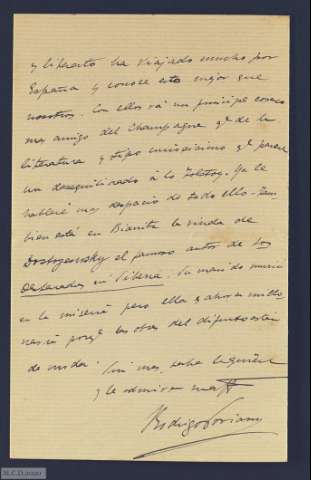 y liberato ha viajado mucho por
España y conoce esto mejor que
nosotros. Con ellos vá un principe cosaco
mas amigo del Champagne qe. de la
literatura y tipo curiosisimo qe. parece
un desequilibrado á lo Tolstoy. Ya le
hablaré mas despacio de todo ello. Tam
bien está en Biarritz la viuda de
Dostoyensky el famoso autor de Los
Desterrados en Siberia. Su marido murió
en la miseria pero ella es ahora millo
naria porqe. las obras del difunto están
de moda. Sin mas, sabe le quiere
y le admira
Rodrigo Soriano
M.C.D. 2020